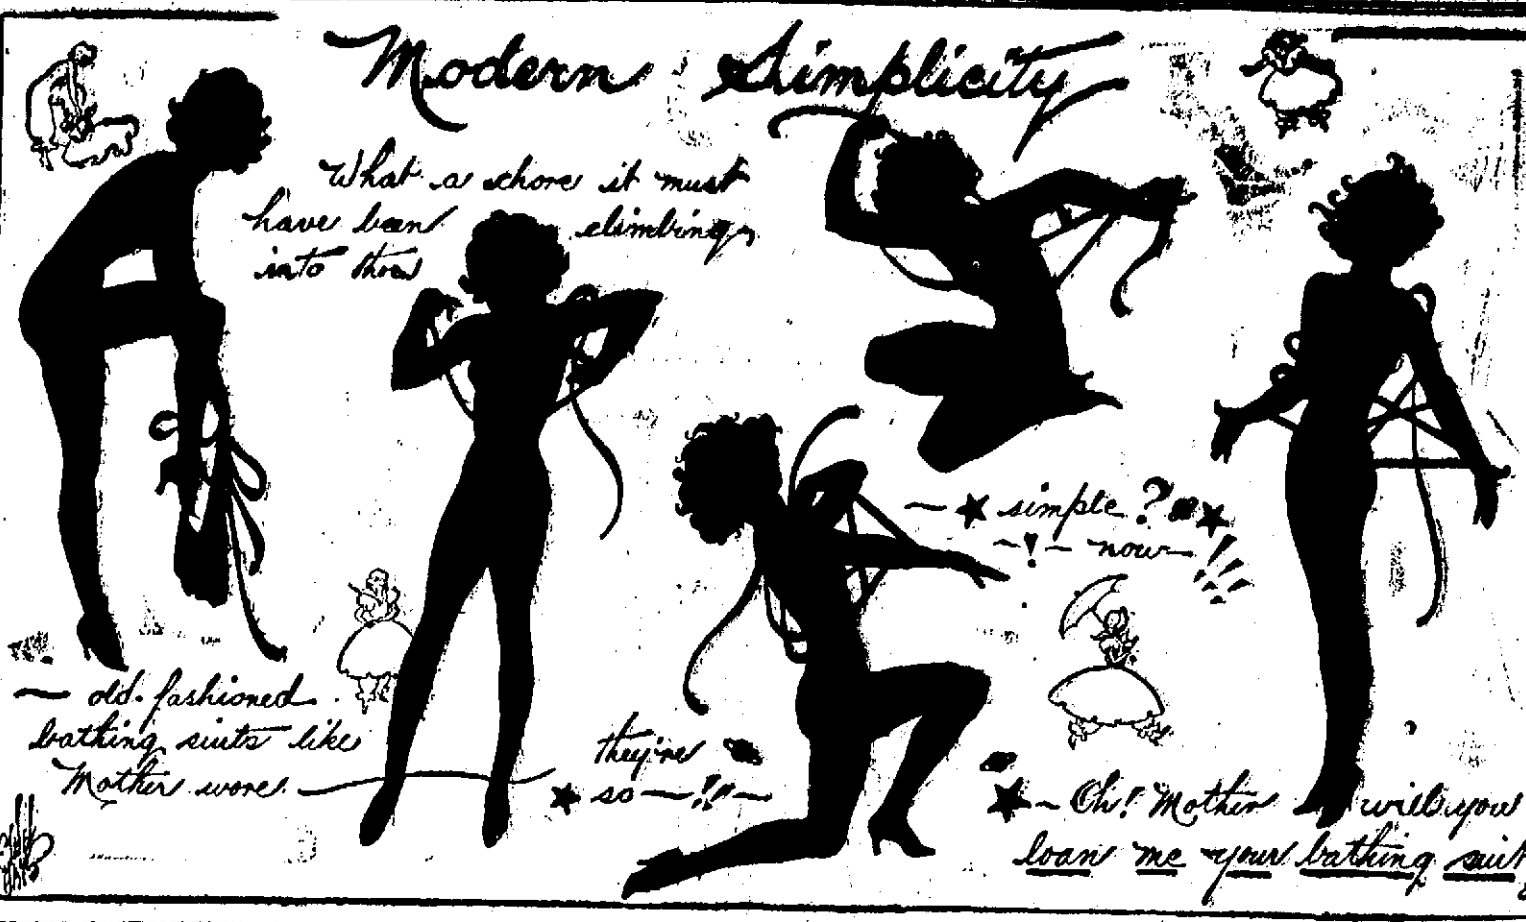 Modern Simplicity
What a chore it must
have been climbing
into those
~ old-fashioned
bathing suits like
Mother wore
they're
so ~!!~
~ ★ simple? ★
~!~ now ~ !!!
★ ~ Oh! Mother will you
loan me your bathing suit